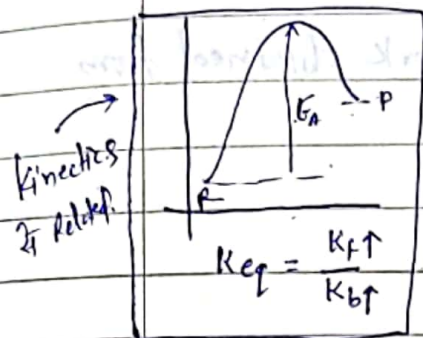 Kinectics
से Related.
E_A
P
R
K_eq = K_f↑ / K_b↑